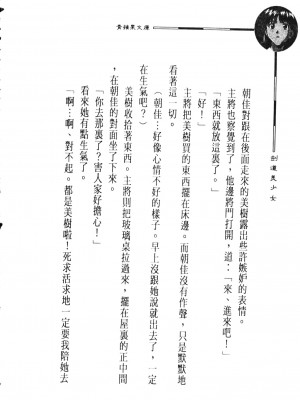 青蘋果文庫
劍道美少女
朝佳對跟在後面走來的美樹露出些許嫉妒的表情。
主將也察覺到了，他邊將門打開，道：「來、進來吧！」
「東西就放這裏了。」
「好！」
主將把美樹買的東西擺在床邊。而朝佳沒有作聲，只是默默地
看著這一切。
（朝佳：好像心情不好的樣子。早上沒跟她說就出去了，一定
在生氣吧？）
美樹收拾著東西。主將則把玻璃桌拉過來，擺在屋裏的正中間
，在朝佳的對面坐了下來。
「你去那裏了？害人家好擔心！」
看來她有點生氣了。
「啊…啊、對不起。都是美樹啦！死求活求地一定要我陪她去